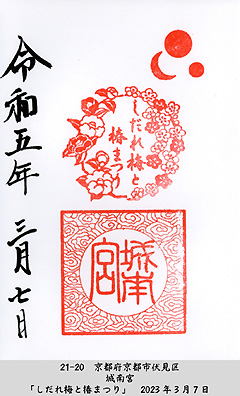 令和五年 三月七日
しだれ梅と
椿まつり
城南宮
21-20 京都府京都市伏見区
城南宮
「しだれ梅と椿まつり」 2023年3月7日